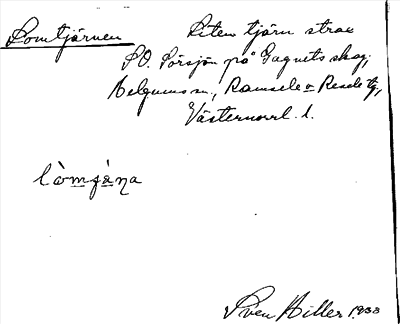 Lomtjärnen
Liten tjärn strax
SO. Lörsjön på Gagnets skog,
Helgums sn, Ramsele o Resele tg,
Västernorrl. l.
lòmɟæ̀ṇa
Sven Hiller 1933